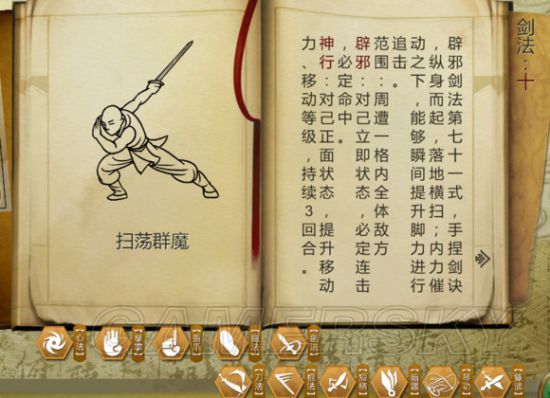 剑法：十
辟邪剑法第七十一式，手捏剑诀
，纵身而起，落地横扫；内力催
动之下，能够瞬间提升脚力进行
追击。
范围：周遭一格内全体敌方
辟邪：对己立即状态，必定连击
，必定命中
神行：对己正面状态，提升移动
力、移动等级，持续3回合。
扫荡群魔
GAMERSKY
心法
指爪
腿法
剑法
刀法
棍法
短柄
暗器